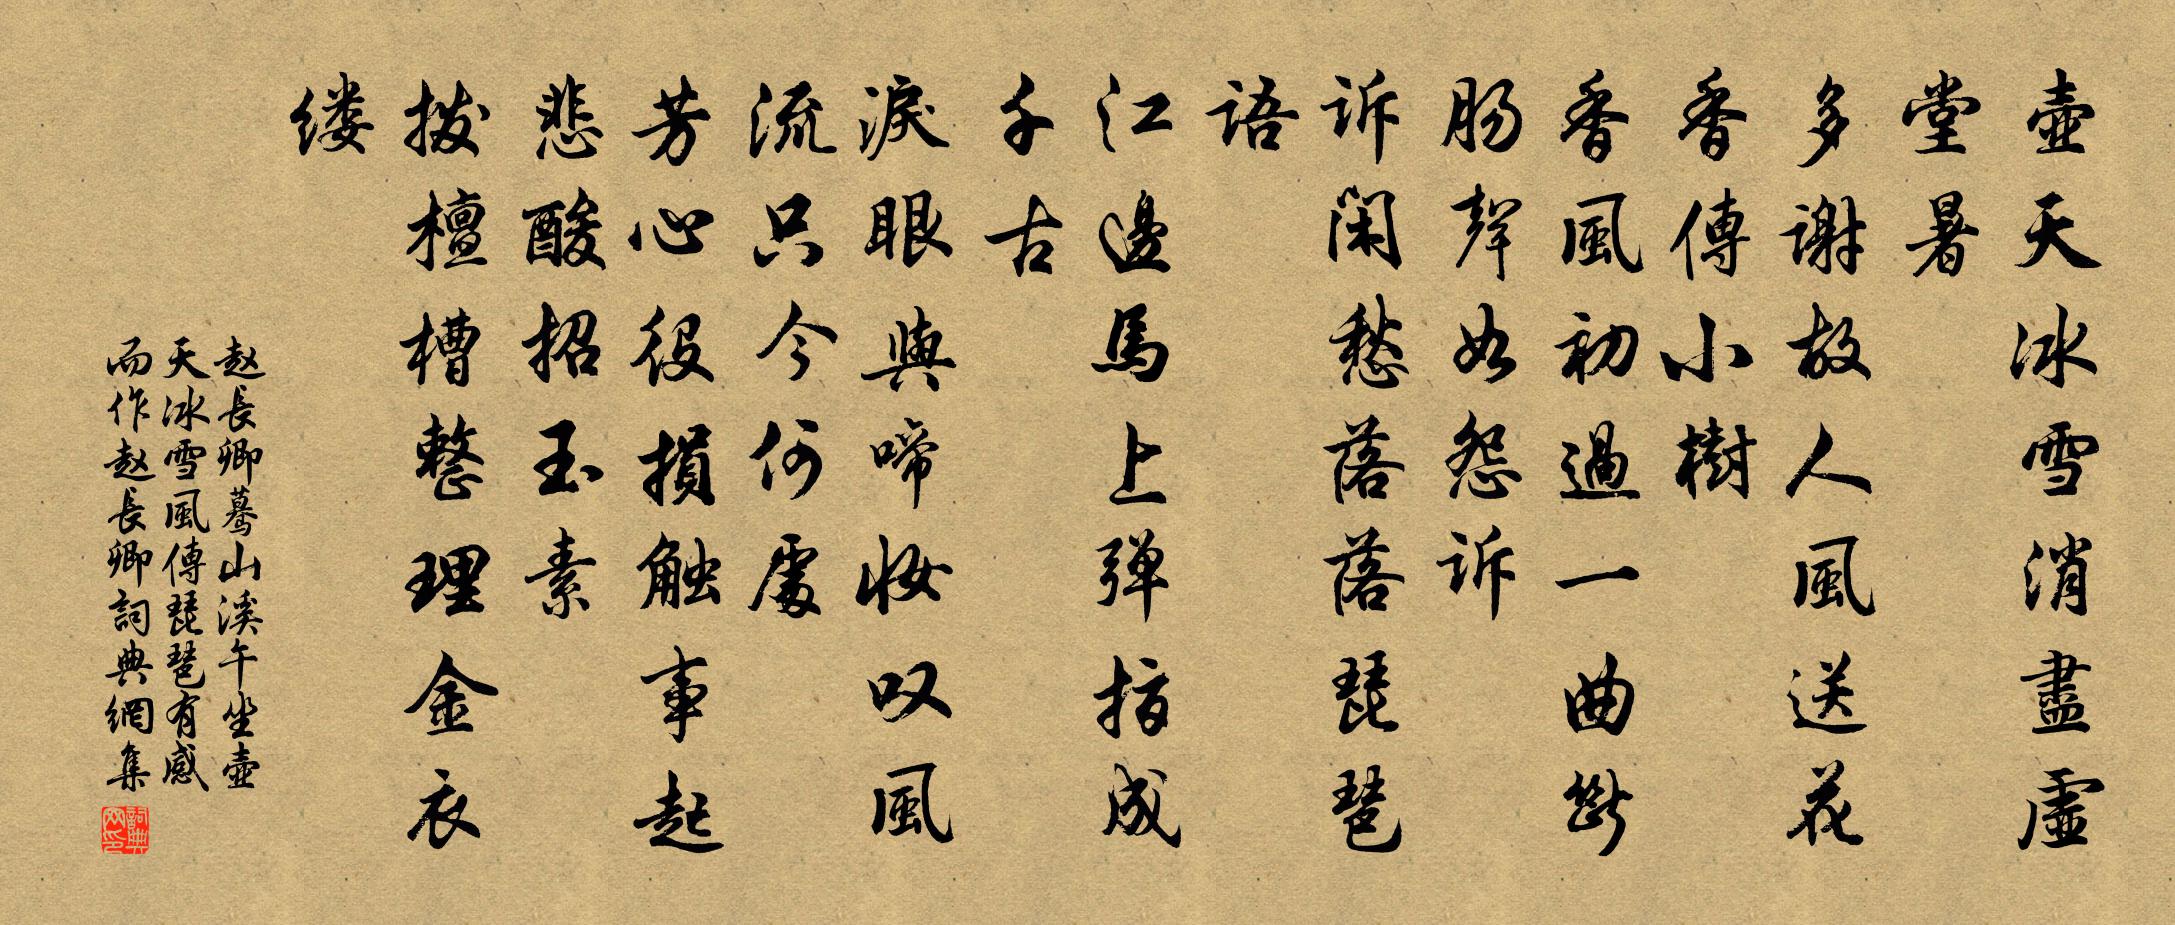 壺天冰雪消盡虛
堂暑
多謝故人風送花
香傳小樹
香風初過一曲斷
腸聲如怨訴
訴闲愁落落琵琶
語
江邊馬上弹指成
千古
淚眼與啼妆叹風
流只今何處
芳心役損触事起
悲酸招玉素
拨檀槽整理金衣
缕
赵長卿蓦山溪午坐壺
天冰雪風傳琵琶有感
而作赵長卿詞典網集
詞典網印